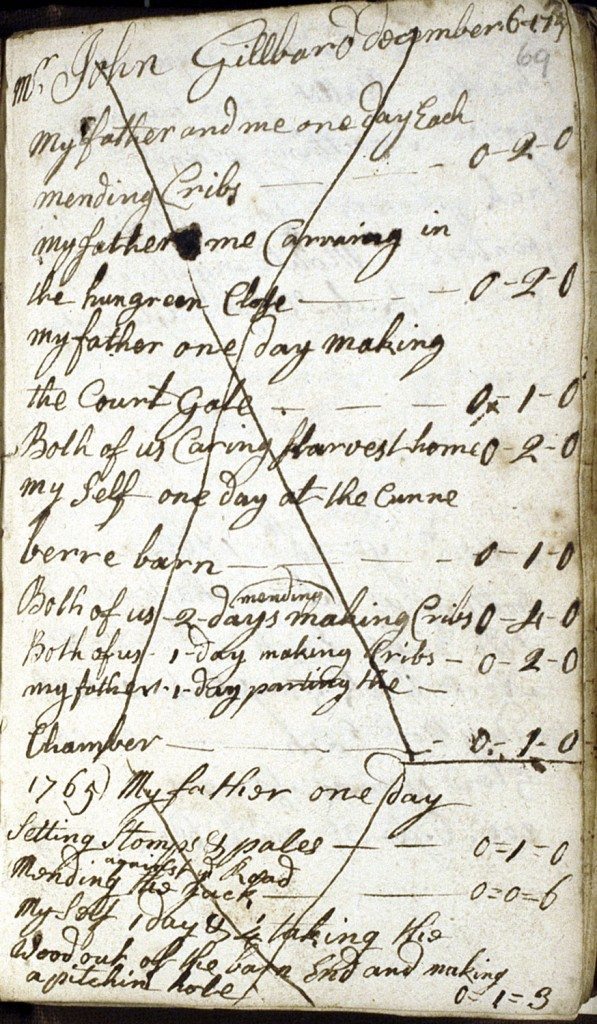 Mr John Gillbard december 6-17
69
my father and me one day Each
mending Cribs — 0-2-0
my father me Carving in
the hungreen Close — 0-2-0
my father one day making
the Court Gate — 0-1-0
Both of us Caring Harvest home 0-2-0
my Self one day at the Cunne
berre barn — 0-1-0
mending
Both of us 2-days making Cribs 0-4-0
Both of us 1-day making Cribs — 0-2-0
my father 1-day parting the —
Chamber — 0-1-0
1765) My father one day
Setting Stomps & pales — 0=1=0
against ye Road
Mending the — 0=0=6
My Self 1 day & ¼ taking the
Wood out of the barn End and making
a pitchin hole 0=1=3